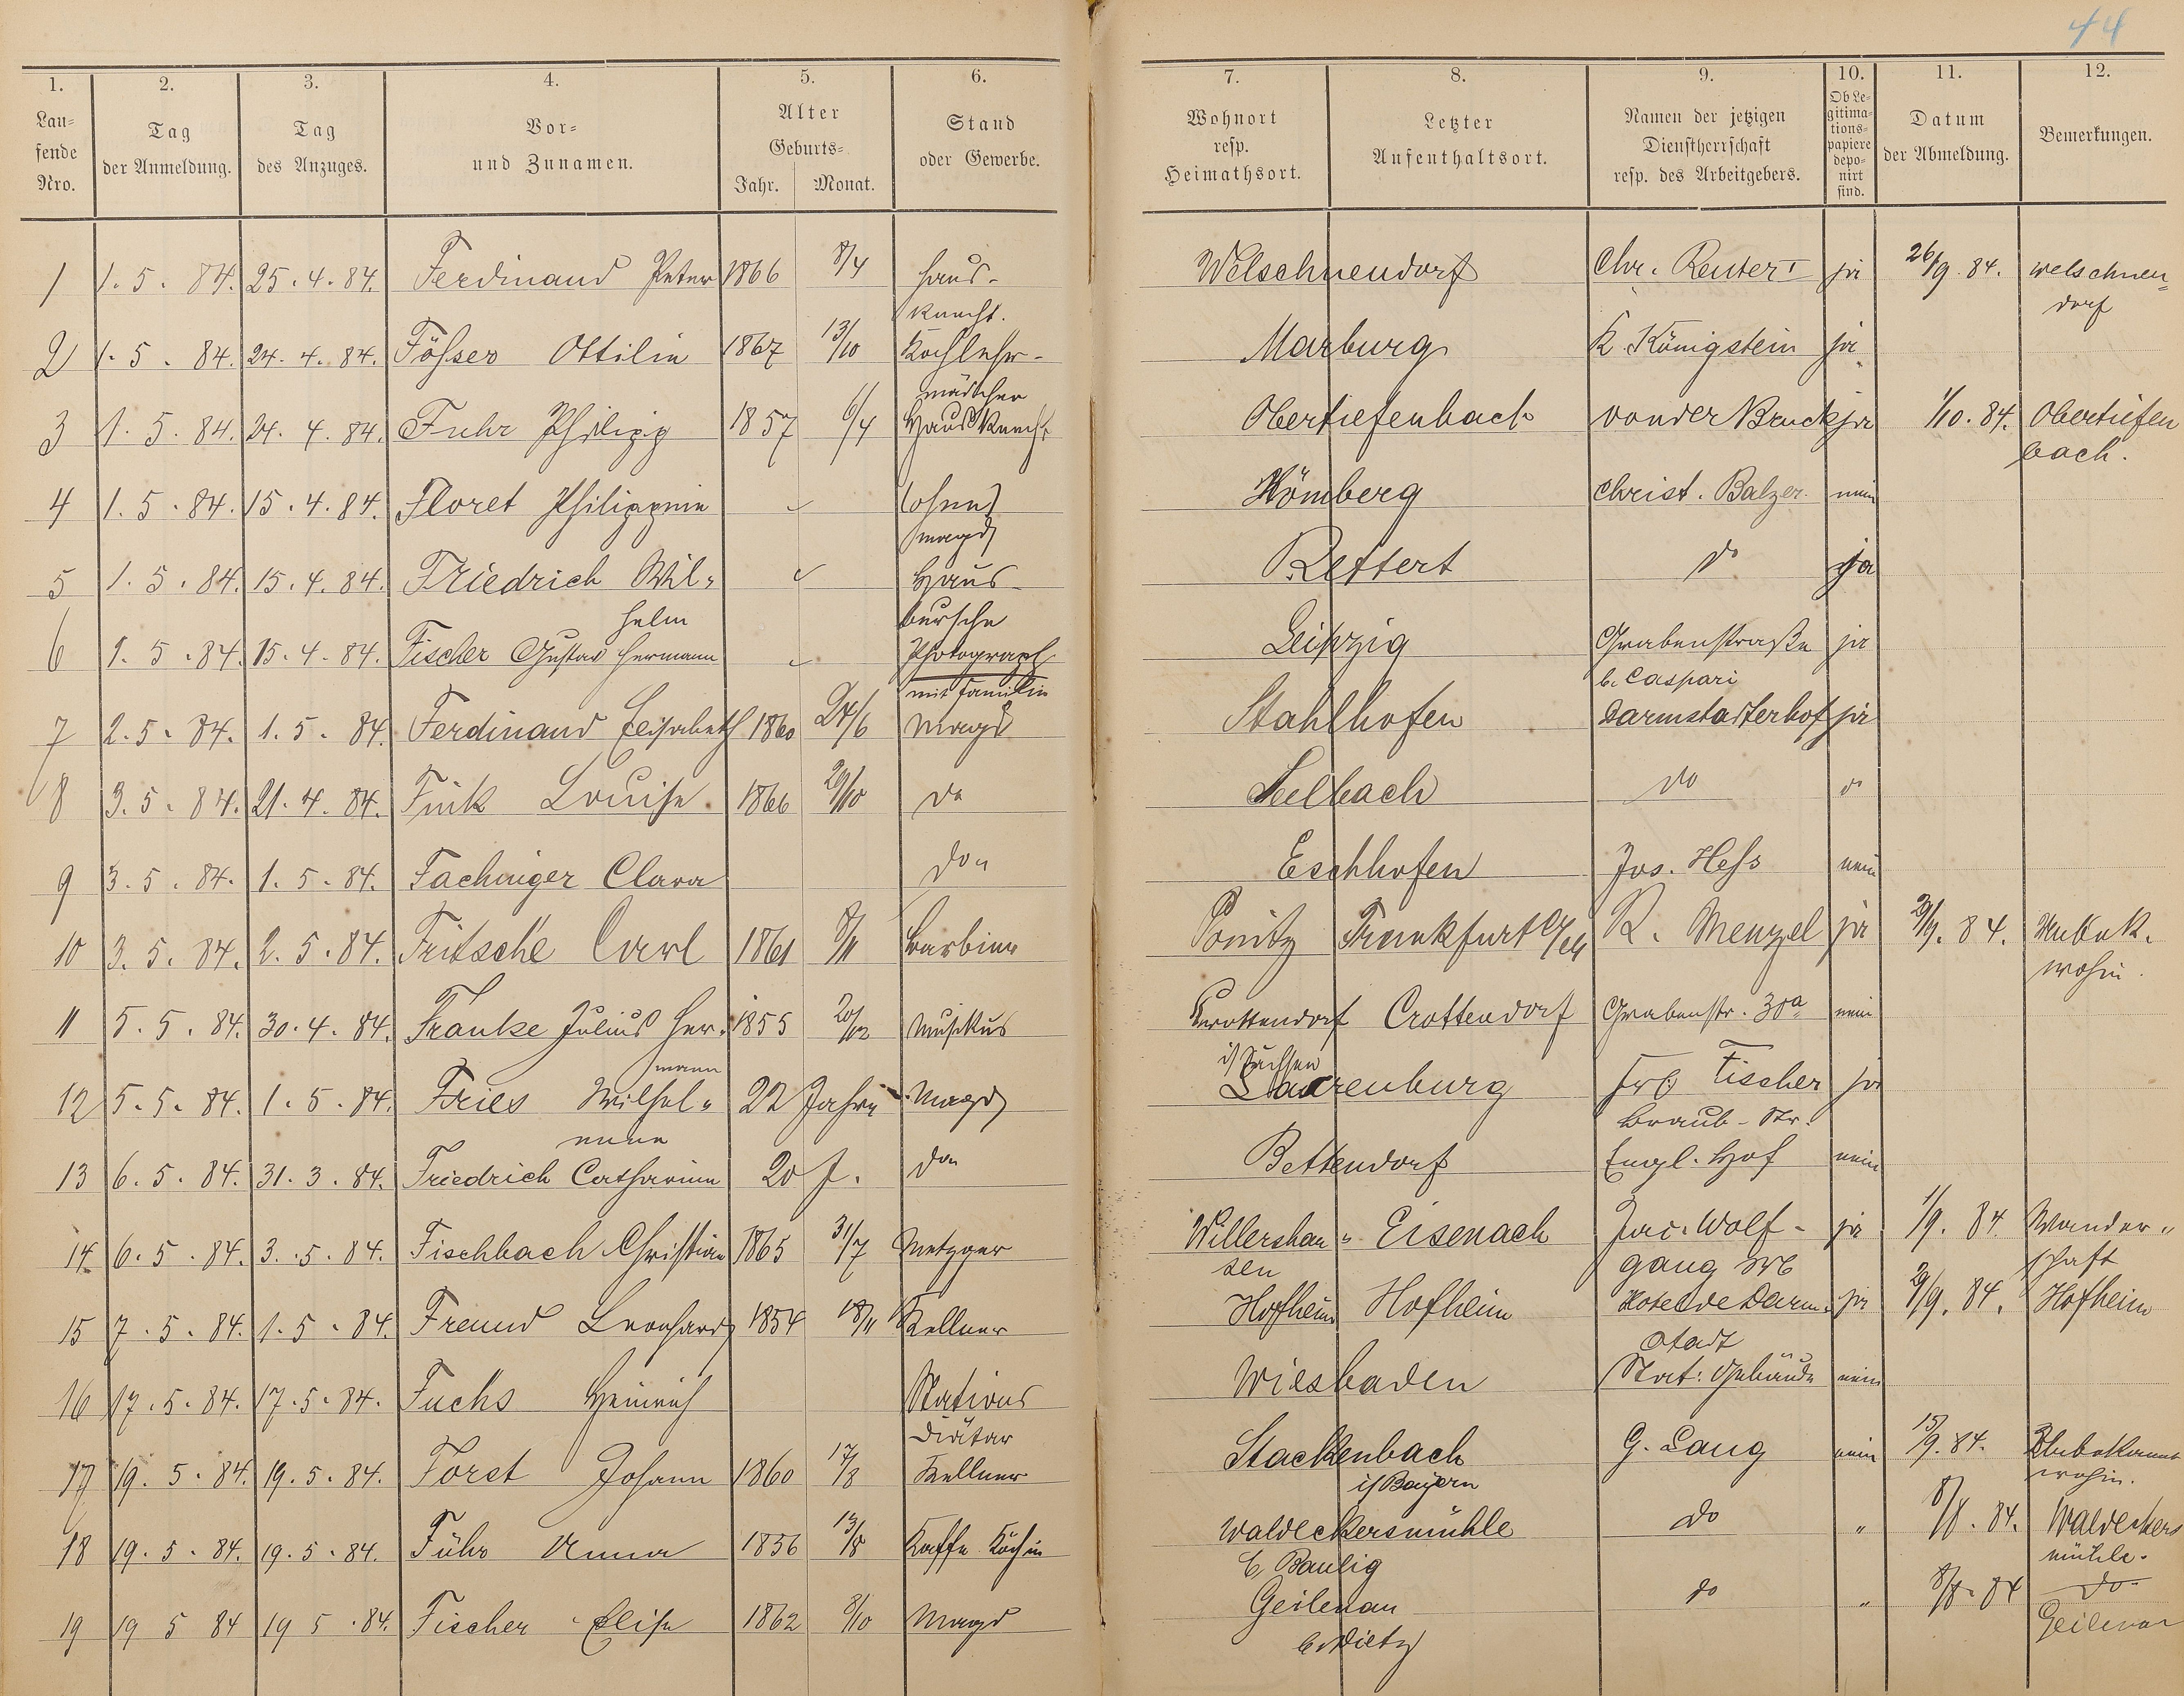 44
1. 2. 3. 4. 5. 6. 7. 8. 9. 10. 11. 12.
Lau-
fende
Nro.
Tag
der Anmeldung.
Tag
des Anzuges.
Vor-
und Zunamen.
Alter
Geburts-
Jahr. Monat.
Stand
oder Gewerbe.
Wohnort
resp.
Heimathsort.
Letzter
Aufenthaltsort.
Namen der jetzigen
Dienstherrschaft
resp. des Arbeitgebers.
Ob Le-
gitima-
tions-
papiere
depo-
nirt
sind.
Datum
der Abmeldung.
Bemerkungen.
1 1. 5. 84. 25. 4. 84. Ferdinand Peter 1866 8/4 Haus- Welschnendorf Chr. Reuter I ja 26/9. 84. Welschnen=
knecht. dorf
2 1. 5. 84. 24. 4. 84. Ottilie 1867 13/10 Kochlehr- Marburg K. Königstein ja
mädchen
3 1. 5. 84. 24. 4. 84. Fuhr Philipp 1857 6/4 Hausknecht Obertiefenbach von der Bruck ja 1/10. 84. Obertiefen
bach.
4 1. 5. 84. 15. 4. 84. Floret Philippine (ohne) Hömberg Christ. Balzer nein
Magd
5 1. 5. 84. 15. 4. 84. Friedrich Wil= Haus- Rettert do ja
helm bursche
6 1. 5. 84. 15. 4. 84. Fischer Gustav Hermann Photograph Leipzig Grabenstraße ja
mit Familie b. Caspari
7 2. 5. 84. 1. 5. 84. Ferdinand Elisabeth 1860 24/6 Magd Stahlhofen Darmstadterhof ja
8 3. 5. 84. 21. 4. 84. Fink Louise 1866 29/10 do Seelbach do do
9 3. 5. 84. 1. 5. 84. Fachinger Clara do Eschhofen Jos. Heß nein
10 3. 5. 84. 2. 5. 84. Fritsche Carl 1861 8/11 Barbier Ponitz Frankfurt a/M R. Menzel ja 29/9. 84. Unbek.
wohin.
11 5. 5. 84. 30. 4. 84. Franke Julius Her= 1855 20/12 Musikus Crottendorf Crottendorf Grabenstr. 30a nein
mann i/ Sachsen
12 5. 5. 84. 1. 5. 84. Fries Wilhel= 22 Jahre Magd Laurenburg Fischer ja
mine
13 6. 5. 84. 31. 3. 84. Friedrich Catharine 20 J. do Bettendorf Engl. Hof nein
14 6. 5. 84. 3. 5. 84. Fischbach Christian 1865 31/7 Metzger Willershau= Eisenach Jac. Wolf- ja 1/9. 84 Wander=
sen gang schaft
15 7. 5. 84. 1. 5. 84. Freund Leonhard 1854 18/11 Kellner Hofheim Hofheim Hotel de Darm= ja 29/9. 84. Hofheim
stadt
16 17. 5. 84. 17. 5. 84. Fuchs Heinrich Stations Wiesbaden Stat: Gebäude nein
Diätar
17 19. 5. 84. 19. 5. 84. Forst Johann 1860 17/8 Kellner Stackenbach G. Lang nein 15/9. 84. Unbekannt
i/ Bayern wohin.
18 19. 5. 84. 19. 5. 84. Führ Anna 1856 13/8 Kaffe Köchin Waldeckersmühle do " 8/8. 84. Waldeckers
b. Baulig mühle.
19 19 5 84 19 5. 84. Fischer Elise 1862 8/10 Magd Geilenau do " 8/8. 84 do
b. Dietz Geilenau